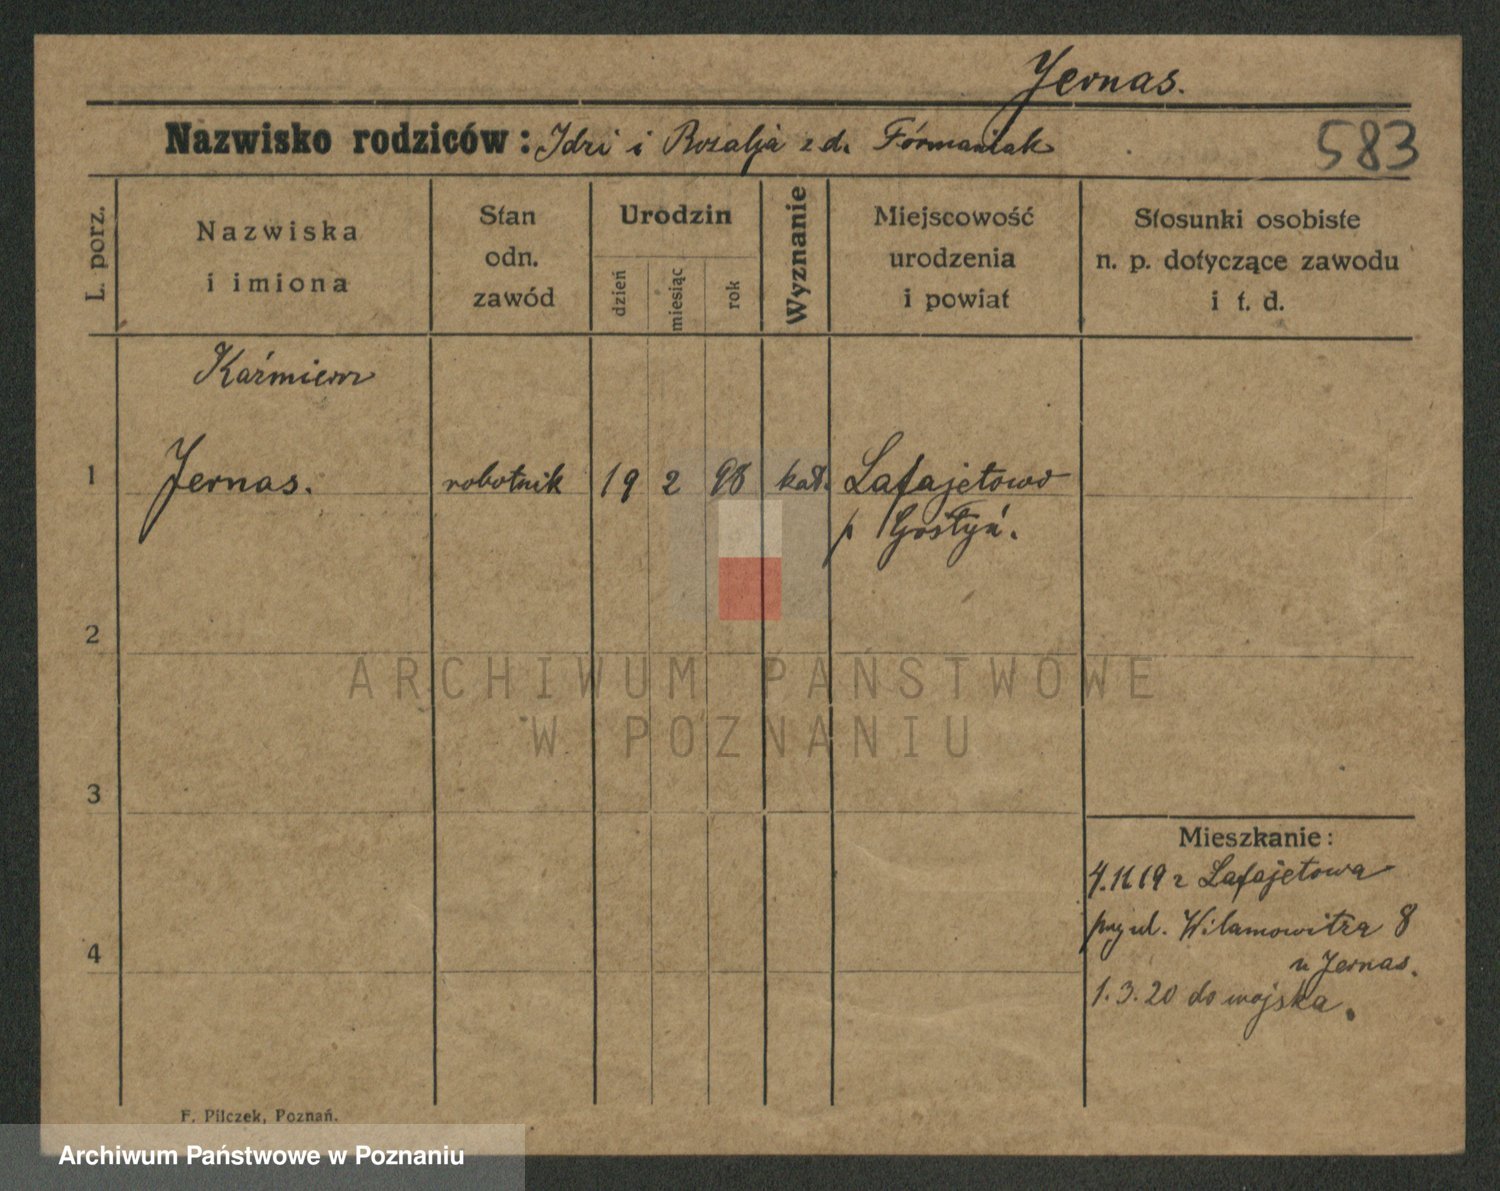 Jernas.
Nazwisko rodziców: Idzi i Rozalja z d. Fórmaniak
583
L. porz.
Nazwiska
i imiona
Stan
odn.
zawód
Urodzin
dzień
miesiąc
rok
Wyznanie
Miejscowość
urodzenia
i powiat
Stosunki osobiste
n. p. dotyczące zawodu
i t. d.
Kaźmierz
1 Jernas. robotnik 19 2 98 kat. Lafajetowo
p Gostyń.
2
3
4
Mieszkanie:
4.11 19 z Lafajetowa
przy ul. Wilamowitza 8
u Jernas.
1.3.20 do wojska.
F. Pilczek, Poznań.
ARCHIWUM PAŃSTWOWE
W POZNANIU
Archiwum Państwowe w Poznaniu